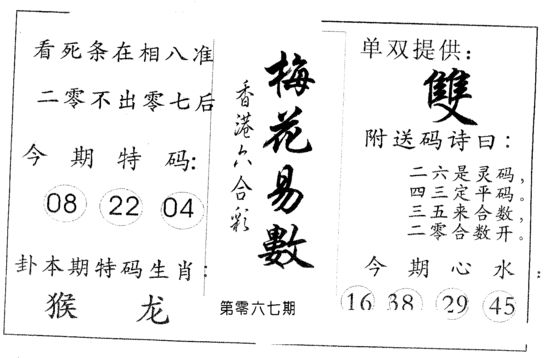 看死条在相八准
二零不出零七后
今期特码:
08 22 04
卦本期特码生肖:
猴 龙
梅花易數
香港六合彩
第零六七期
单双提供:
雙
附送码诗曰:
二六是灵码,
四三定平码。
三五来合数,
二零合数开。
今期心水:
16 38 29 45